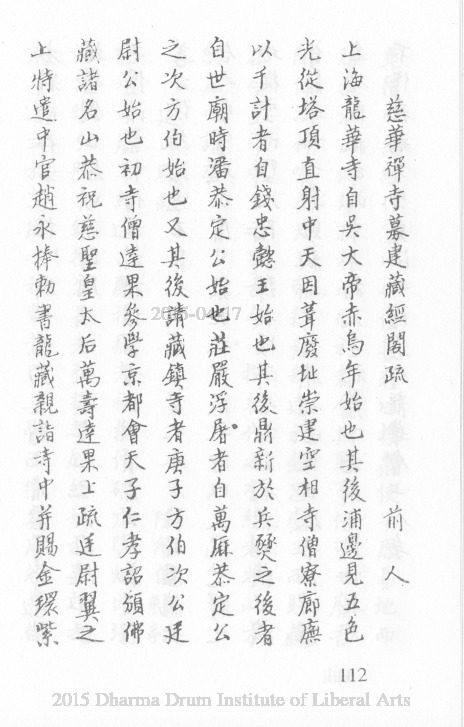 慈華禪寺募建藏經閣疏　前人
上海龍華寺自吳大帝赤烏年始也其後浦邊見五色
光從塔頂直射中天因葺廢址崇建空相寺僧寮廊廡
以千計者自錢忠懿王始也其後鼎新於兵燹之後者
自世廟時潘恭定公始也莊嚴浮屠者自萬厤恭定公
之次方伯始也又其後請藏鎮寺者庚子方伯次公廷
尉公始也初寺僧達果參學京都會天子仁孝詔頒佛
藏諸名山恭祝慈聖皇太后萬壽達果上疏廷尉翼之
上特遣中官趙永捧勅書龍藏親詣寺中并賜金環紫
112
2015 Dharma Drum Institute of Liberal Arts